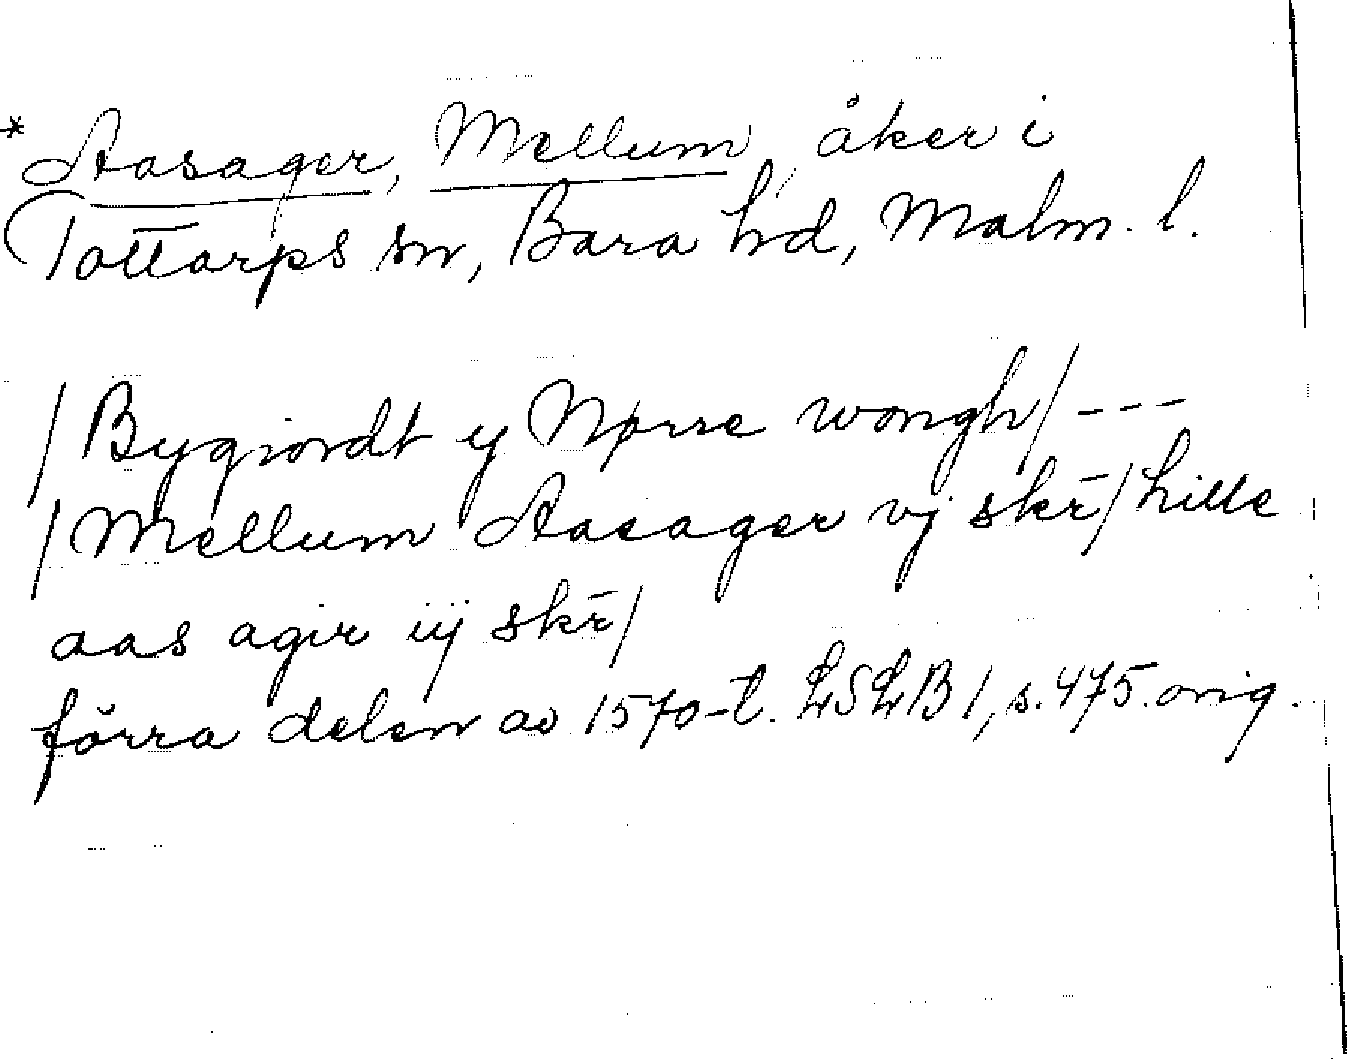 * Aasager, Mellum, åker i
Tottarps sn, Bara hd, Malm. l.
/ Bygiordt y Nørre wongh / ---
/ Mellum Aasager vj skr̄ / hille
aas agir iij skr̄ /
förra delen av 1570-t. LSLB 1, s. 475. orig.